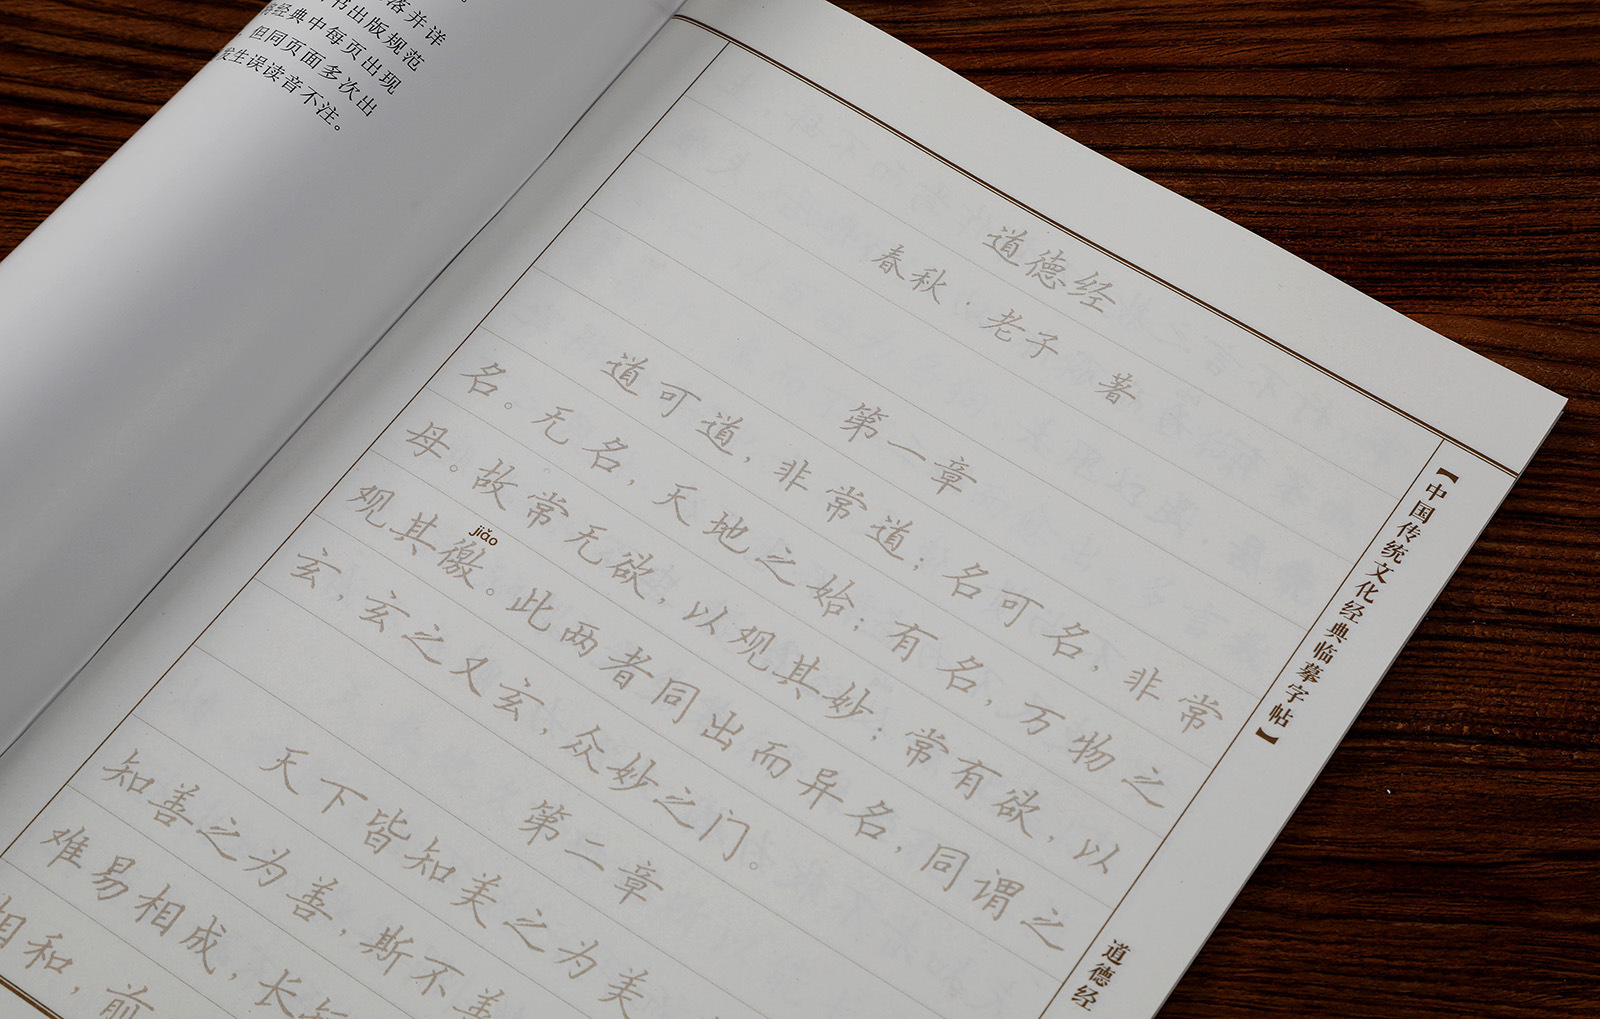 落并详
书出版规范
经典中每页出现
但同页面多次出
发生误读音不注。
道德经
春秋·老子 著
第一章
道可道，非常道；名可名，非常
名。无名，天地之始；有名，万物之
母。故常无欲，以观其妙；常有欲，以
jiǎo
观其徼。此两者同出而异名，同谓之
玄，玄之又玄，众妙之门。
第二章
天下皆知美之为美
知善之为善，斯不善
难易相成，长
相和，前
【中国传统文化经典临摹字帖】
道德经